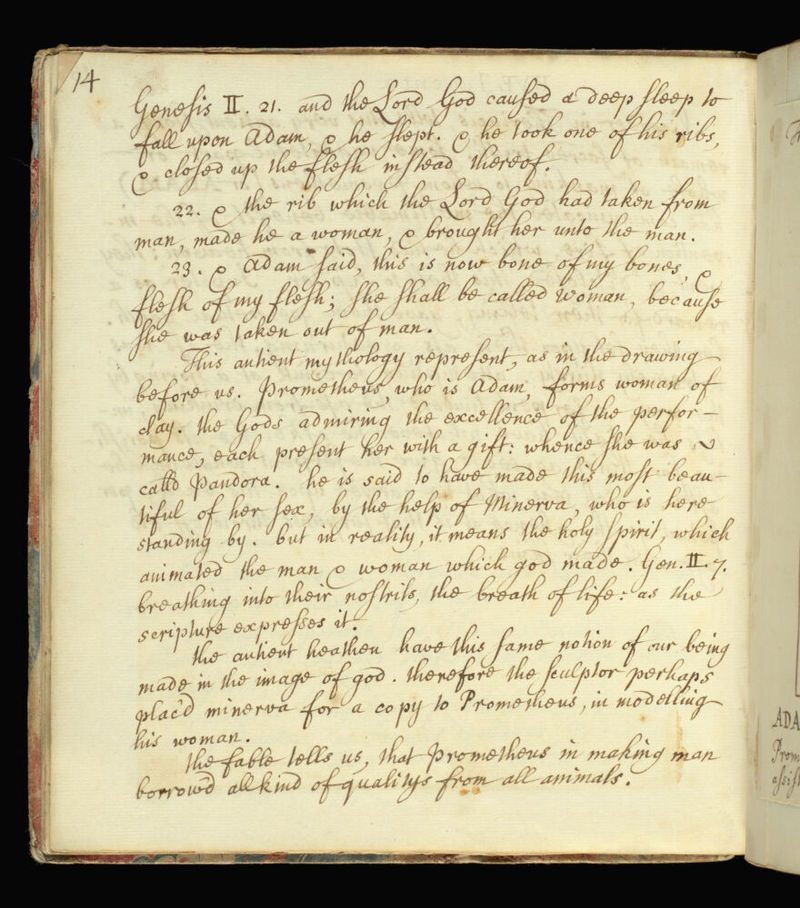 14
Genesis II. 21. and the Lord God caused a deep sleep to
fall upon Adam, & he slept. & he took one of his ribs,
& closed up the flesh instead thereof.
22. & the rib which the Lord God had taken from
man, made he a woman, & brought her unto the man.
23. & Adam said, this is now bone of my bones, &
flesh of my flesh; she shall be called woman, because
she was taken out of man.
This antient mythology represent, as in the drawing
before us. Prometheus, who is Adam, forms woman of
clay. the Gods admiring the excellence of the perfor-
mance, each present her with a gift: whence she was
calld Pandora. he is said to have made this most beau-
tiful of her sex, by the help of Minerva, who is here
standing by. but in reality, it means the holy spirit, which
animated the man & woman which god made. Gen. II. 7.
breathing into their nostrils, the breath of life: as the
scripture expresses it.
the antient heathen have this same notion of our being
made in the image of god. therefore the sculptor perhaps
plac'd minerva for a copy to Prometheus, in modelling
his woman.
the fable tells us, that Prometheus in making man
borrow'd all kind of qualitys from all animals.
ADA
Prom
assist